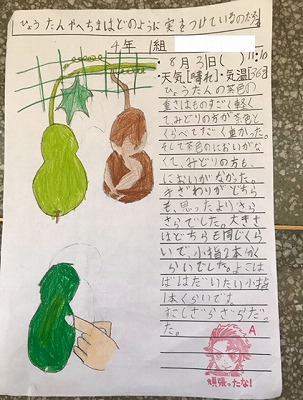 ひょうたんやへちまはどのように実をつけているのだろう
4年 1組
11:10
・8月3日( )
・天気[晴れ]・気温[36℃]
ひょうたんの茶色の
重さはものすごく軽く
てみどりの方が茶色と
くらべてすごく重かった。
そして茶色のにおいがな
くて、みどりの方も、
においがなかった。
手ざわりがどちら
も、思ったよりさら
さらでした。大きさ
はどちらも同じくら
いで、小指2本分く
らいでした。よこは
ばはだいたい小指
1本くらいです
むしざらざらだっ
た。
A
頑張ったな!